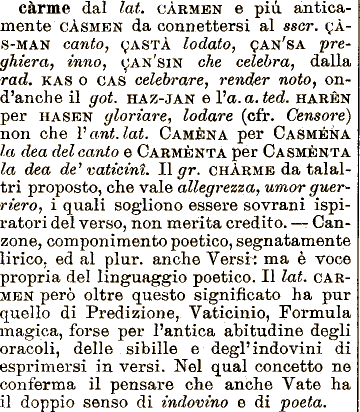 càrme dal lat. CÀRMEN e piú antica-
mente CÀSMEN da connettersi al sscr. ÇÀ-
S-MAN canto, ÇASTÀ lodato, ÇAN'SA pre-
ghiera, inno, ÇAN'SIN che celebra, dalla
rad. KAS o CAS celebrare, render noto, on-
d'anche il got. HAZ-JAN e l'a.a.ted. HARÊN
per HASEN gloriare, lodare (cfr. Censore)
non che l'ant. lat. CAMÈNA per CASMÈNA
la dea del canto e CARMÈNTA per CASMÈNTA
la dea de' vaticinî. Il gr. CHÀRME da talal-
tri proposto, che vale allegrezza, umor guer-
riero, i quali sogliono essere sovrani ispi-
ratori del verso, non merita credito. — Can-
zone, componimento poetico, segnatamente
lirico, ed al plur. anche Versi: ma è voce
propria del linguaggio poetico. Il lat. CAR-
MEN però oltre questo significato ha pur
quello di Predizione, Vaticinio, Formula
magica, forse per l'antica abitudine degli
oracoli, delle sibille e degl'indovini di
esprimersi in versi. Nel qual concetto ne
conferma il pensare che anche Vate ha
il doppio senso di indovino e di poeta.